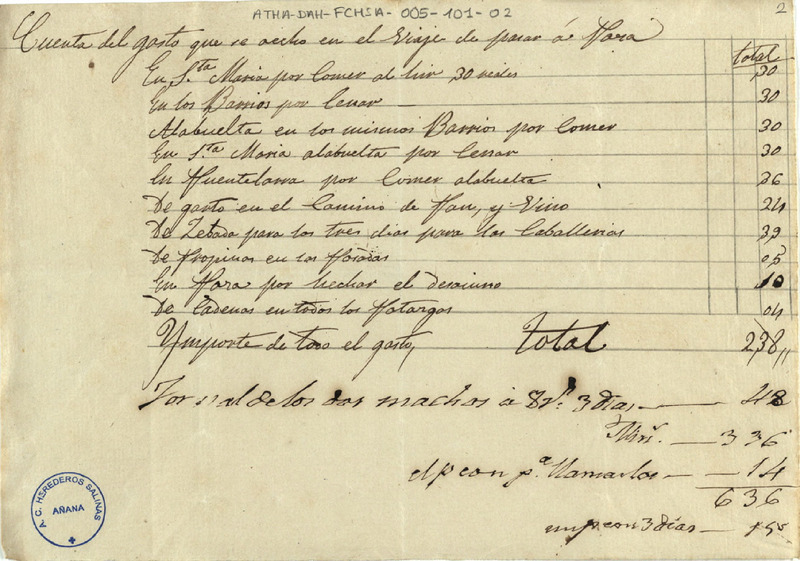 ATHA-DAH-FCHSA-005-101-02
2
Cuenta del gasto que se aecho en el Viaje de pasar á Poza
total
En S.ta Maria por Comer al hir 30 reales 30
En los Barrios por Cenar — 30
Alabuelta en los mismos Barrios por Comer 30
En S.ta Maria alabuelta por Cenar 30
En Fuentelarra por Comer alabuelta 36
De gasto en el Camino de Pan, y Vino 24
De Zebada para los tres dias para las Caballerias 39
De Propinas en las Posadas 05
En Poza por hechar el desaiuno 10
De Cadenas en todos los Potazgos 04
Ymporte de todo el gasto, total 238,,
Jornal de los dos machos á 8 r.s 3 dias — 48
— 336
el peon p.a llamarlos — 14
636
un peon 3 dias — 15
A. C. HEREDEROS SALINAS
AÑANA